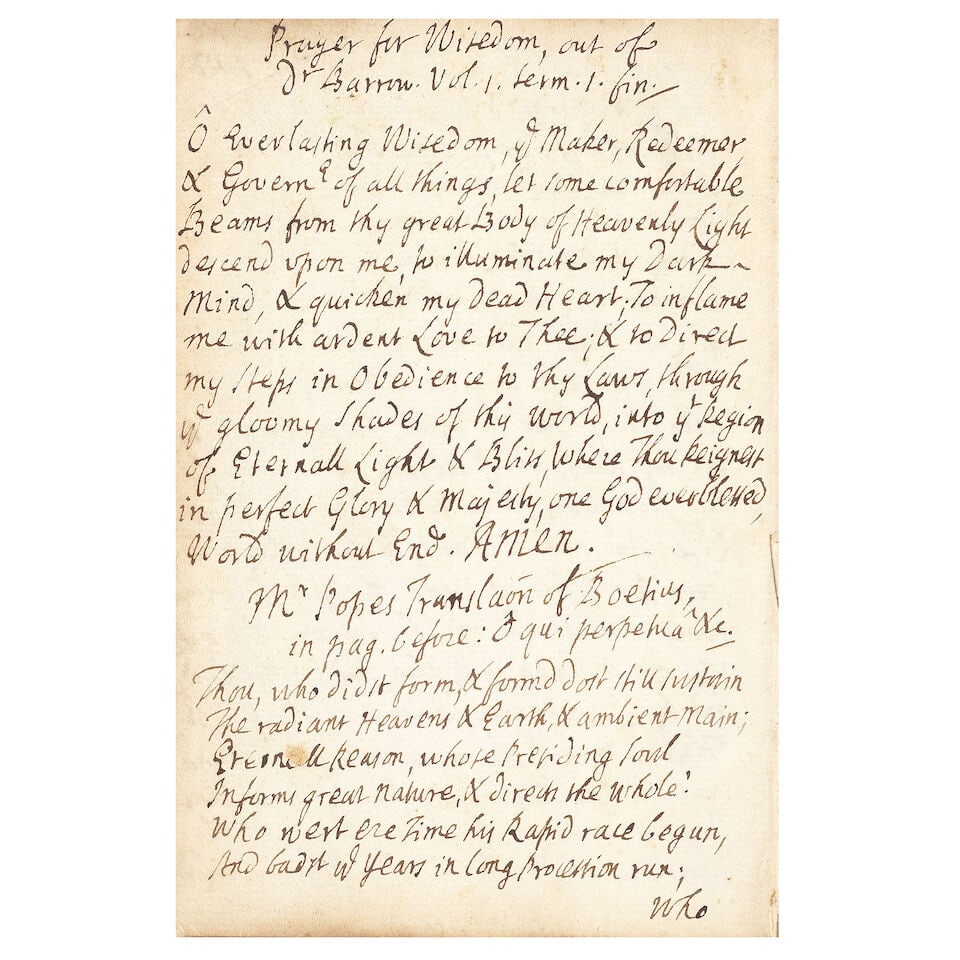 Prayer for Wisedom, out of
Dr Barrow. Vol. 1. serm. 1. fin.
Ô Everlasting Wisedom, ye Maker, Redeemer
& Governr of all things, let some comfortable
Beams from thy great Body of Heavenly Light
descend upon me, to illuminate my Dark
Mind, & quicken my Dead Heart; To inflame
me with ardent Love to Thee; & to Direct
my Steps in Obedience to thy Laws, through
ye gloomy Shades of this World, into yt Region
of Eternall Light & Bliss, Where Thou Reignest
in perfect Glory & Majesty, one God ever blessed,
World without End. Amen.
Mr Popes Translaõn of Boetius,
in pag. before: Ô qui perpetuâ &c.
Thou, who didst form, & formd dost still sustain
The radiant Heavens & Earth, & ambient Main;
Eternall Reason, whose Presiding Soul
Informs great Nature, & directs the whole:
Who wert ere Time his Rapid race begun,
And badst ye Years in long Procession run;
Who